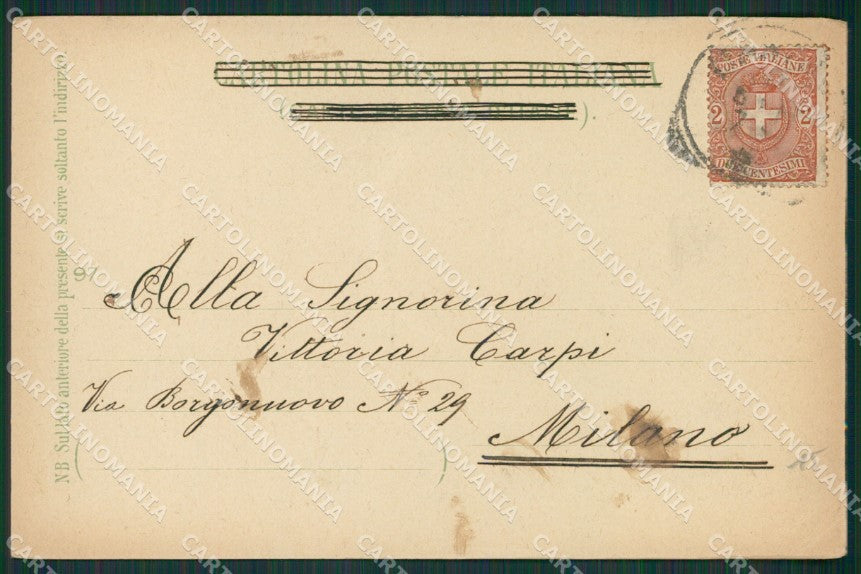 CARTOLINA POSTALE ITALIANA
POSTE ITALIANE
2 2
DUE CENTESIMI
NB Sul lato anteriore della presente si scrive soltanto l'indirizzo.
97
Alla Signorina
Vittoria Carpi
Via Borgonuovo No 29
Milano
CARTOLINOMANIA